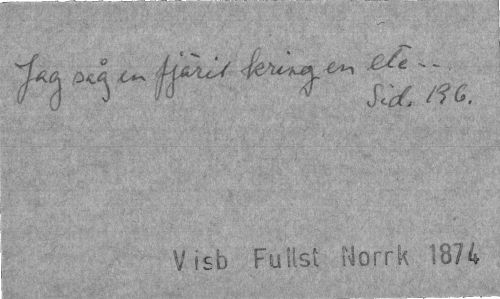 Jag såg en fjäril kring en ete--
Sid. 196.
Visb Fullst Norrk 1874